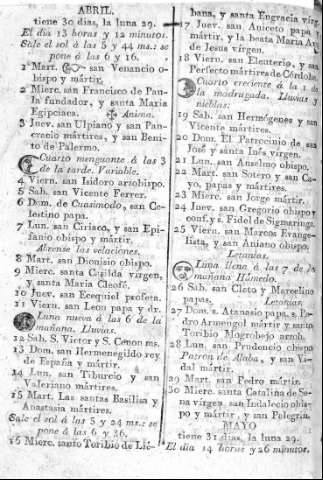 ABRIL.
tiene 30 dias, la luna 29.
El dia 13 horas y 12 minutos.
Sale el sol á las 5 y 44 ms.: se
pone á las 6 y 16.
1 Mart. san Venancio o-
bispo y mártir.
2 Mierc. san Francisco de Pau-
la fundador, y santa María
Egipciaca. ✠ Anima.
3 Juev. san Ulpiano y san Pan-
cracio mártires, y san Beni-
to de Palermo.
Cuarto menguante á las 3
de la tarde. Variable.
4 Viern. san Isidoro arzobispo.
5 Sab. san Vicente Ferrer.
6 Dom. de Cuasimodo, san Ce-
lestino papa.
7 Lun. san Ciriaco, y san Epi-
fanio obispo y mártir.
Abrense las velaciones.
8 Mart. san Dionisio obispo.
9 Mierc. santa Casilda virgen,
y santa María Cleofé.
10 Juev. san Ecequiel profeta.
11 Viern. san Leon papa y dr.
Luna nueva á las 6 de la
mañana. Lluvias.
12 Sab. S. Victor y S. Cenon ms.
13 Dom. san Hermenegildo rey
de España y mártir.
14 Lun. san Tiburcio y san
Valeriano mártires.
15 Mart. Las santas Basilisa y
Anastasia mártires.
Sale el sol á las 5 y 24 ms.: se
pone á las 6 y 36.
16 Mierc. santo Toribio de Lié-
bana, y santa Engracia virg.
17 Juev. san Aniceto papa y
mártir, y la beata María An.
de Jesus virgen.
18 Viern. san Eleuterio, y san
Perfecto mártires de Córdoba.
Cuarto creciente á la 1 de
la madrugada. Lluvias y
nieblas.
19 Sab. san Hermógenes y san
Vicente mártires.
20 Dom. El Patrocinio de san
José y santa Inés virgen.
21 Lun. san Anselmo obispo.
22 Mart. san Sotero y san Ca-
yo, papas y mártires.
23 Mierc. san Jorge mártir.
24 Juev. san Gregorio obispo y
conf. y s. Fidel de Sigmaringa.
25 Viern. san Marcos Evange-
lista, y san Aniano obispo.
Letanías.
Luna llena á las 7 de la
mañana Húmedo.
26 Sab. san Cleto y Marcelino
papas. Letanías.
27 Dom. s. Atanasio papa, s. Pe-
dro Armengol mártir y santo
Toribio Mogrobejo arzob.
28 Lun. san Prudencio obispo
Patron de Alaba, y san Vi-
dal mártir.
29 Mart. san Pedro mártir.
30 Mierc. santa Catalina de Se-
na virgen, san Indalecio obis-
po y mártir, y san Pelegrin.
MAYO
tiene 31 dias, la luna 29.
El dia 14 horas y 26 minutos.